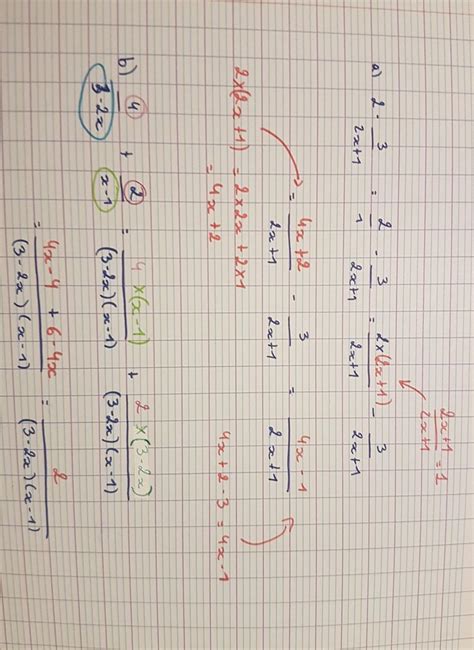 (2x+1)/(2x+1) = 1
a) 2 - 3/(2x+1) = 2/1 - 3/(2x+1) = 2×(2x+1)/(2x+1) - 3/(2x+1)
= (4x+2)/(2x+1) - 3/(2x+1) = (4x-1)/(2x+1)
2×(2x+1) = 2×2x+2×1
= 4x+2
4x+2-3 = 4x-1
b) 4/(3-2x) + 2/(x-1) = 4×(x-1)/((3-2x)(x-1)) + 2×(3-2x)/((3-2x)(x-1))
= (4x-4+6-4x)/((3-2x)(x-1)) = 2/((3-2x)(x-1))